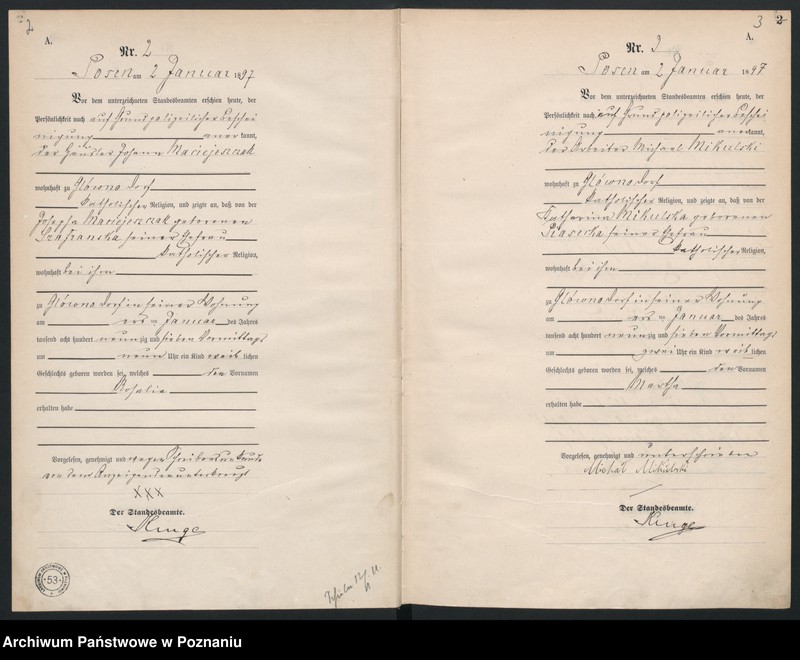 2
A.
Nr. 2
Posen am 2 Januar 1897
Vor dem unterzeichneten Standesbeamten erschien heute, der
Persönlichkeit nach auf Grund polizeilicher Beschei
nigung anerkannt,
der Häusler Johann Maciejeszczak
wohnhaft zu Glówno Dorf
katholischer Religion, und zeigte an, daß von der
Josepha Maciejeszczak geborenen
Szafranska seiner Ehefrau
katholischer Religion,
wohnhaft bei ihm
zu Glówno Dorf in seiner Wohnung
am ersten Januar des Jahres
tausend acht hundert neunzig und sieben Vormittags
um neun Uhr ein Kind weiblichen
Geschlechts geboren worden sei, welches den Vornamen
Rosalie
erhalten habe
Vorgelesen, genehmigt und wegen Schreibensunkunde
von dem Anzeigenden unterkreuzt
XXX
Der Standesbeamte.
Kluge
53
3 2
A.
Nr. 3
Posen am 2 Januar 1897
Vor dem unterzeichneten Standesbeamten erschien heute, der
Persönlichkeit nach auf Grund polizeilicher Beschei
nigung anerkannt,
der Arbeiter Michael Mikulski
wohnhaft zu Glówno Dorf
katholischer Religion, und zeigte an, daß von der
Katharina Mikulska geborenen
Piasecka seiner Ehefrau
katholischer Religion,
wohnhaft bei ihm
zu Glówno Dorf in seiner Wohnung
am ersten Januar des Jahres
tausend acht hundert neunzig und sieben Vormittags
um zwei Uhr ein Kind weiblichen
Geschlechts geboren worden sei, welches den Vornamen
Martha
erhalten habe
Vorgelesen, genehmigt und unterschrieben
Michał Mikulski
Der Standesbeamte.
Kluge
Archiwum Państwowe w Poznaniu